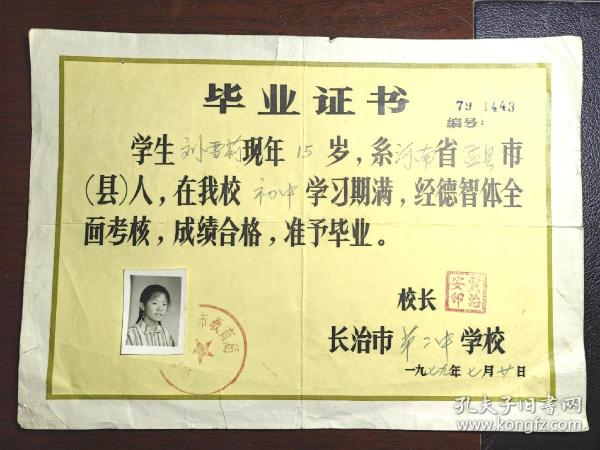 毕业证书
79 1443
编号：
学生刘雪莉现年15岁，系河南省孟县市
（县）人，在我校初中学习期满，经德智体全
面考核，成绩合格，准予毕业。
校长
安黄印治
长治市第二中学校
一九七九年七月廿日
市教育局
孔夫子旧书网
www.kongfz.com